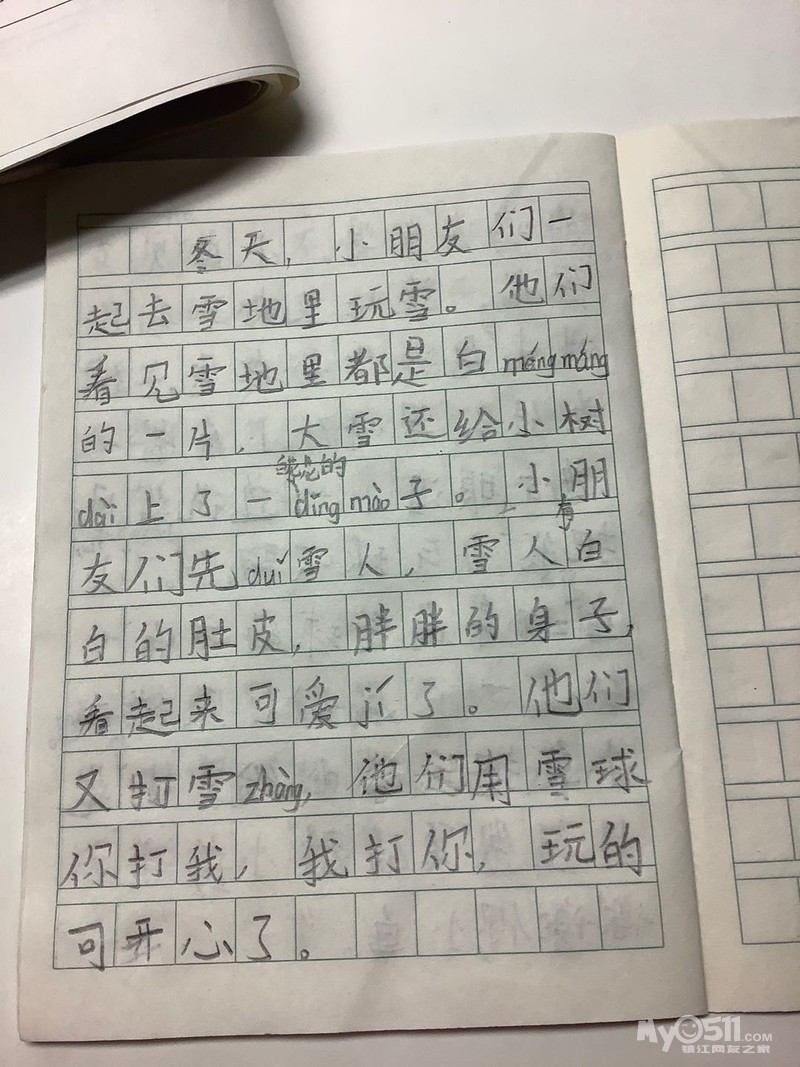 冬天，小朋友们一
起去雪地里玩雪。他们
看见雪地里都是白mángmáng
的一片，大雪还给小树
dài上了一dǐngmào子。小朋
友们先duī雪人，雪人有白
白的肚皮，胖胖的身子，
看起来可爱jí了。他们
又打雪zhàng，他们用雪球
你打我，我打你，玩的
可开心了。
My0511.COM
镇江网友之家